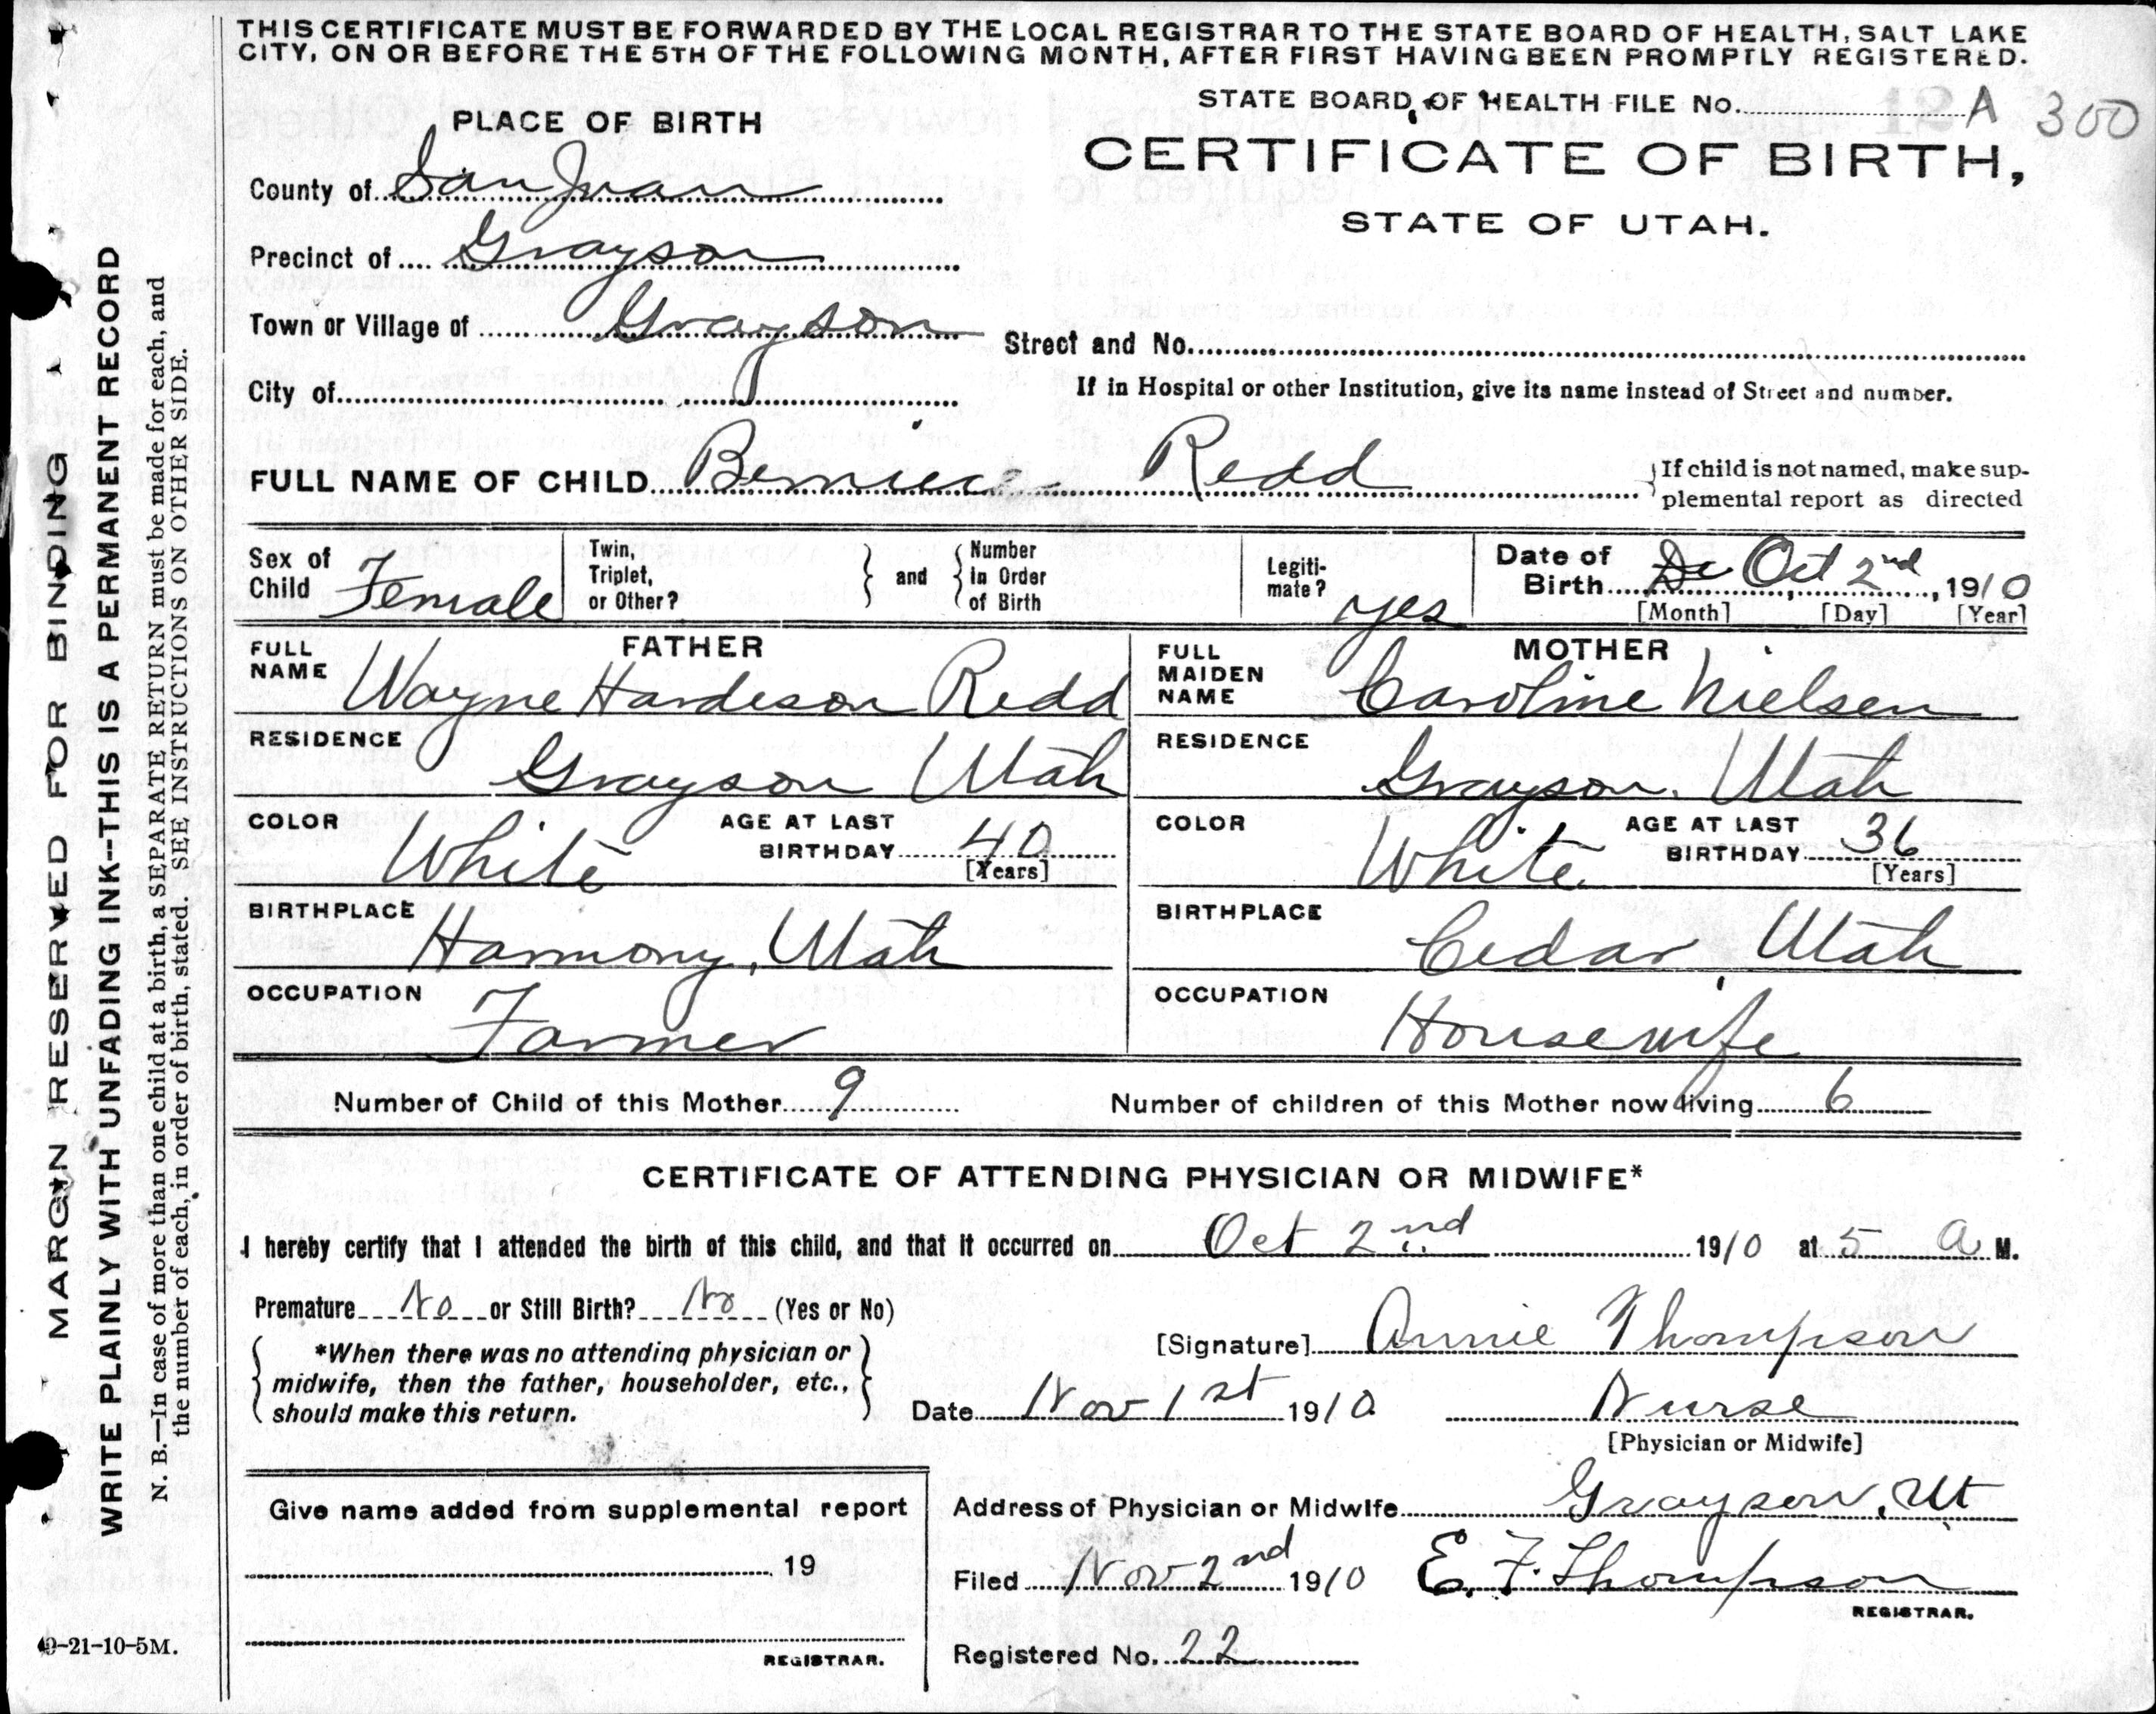 THIS CERTIFICATE MUST BE FORWARDED BY THE LOCAL REGISTRAR TO THE STATE BOARD OF HEALTH, SALT LAKE
CITY, ON OR BEFORE THE 5TH OF THE FOLLOWING MONTH, AFTER FIRST HAVING BEEN PROMPTLY REGISTERED.
STATE BOARD OF HEALTH FILE NO. A 300
PLACE OF BIRTH
CERTIFICATE OF BIRTH,
STATE OF UTAH.
County of San Juan
Precinct of Grayson
Town or Village of Grayson
Street and No.
City of
If in Hospital or other Institution, give its name instead of Street and number.
FULL NAME OF CHILD Berniece Redd
If child is not named, make sup-
plemental report as directed
Sex of Child Female
Twin, Triplet, or Other?
and
Number in Order of Birth
Legiti-mate? yes
Date of Birth De Oct 2nd, 1910
[Month] [Day] [Year]
FATHER
FULL NAME Wayne Hardeson Redd
RESIDENCE Grayson Utah
COLOR White
AGE AT LAST BIRTHDAY 40
[Years]
BIRTHPLACE Harmony, Utah
OCCUPATION Farmer
MOTHER
FULL MAIDEN NAME Caroline Nielsen
RESIDENCE Grayson. Utah
COLOR White
AGE AT LAST BIRTHDAY 36
[Years]
BIRTHPLACE Cedar Utah
OCCUPATION Housewife
Number of Child of this Mother 9
Number of children of this Mother now living 6
CERTIFICATE OF ATTENDING PHYSICIAN OR MIDWIFE*
I hereby certify that I attended the birth of this child, and that it occurred on Oct 2nd 1910 at 5 a M.
Premature No or Still Birth? No (Yes or No)
*When there was no attending physician or
midwife, then the father, householder, etc.,
should make this return.
[Signature] Annie Thompson
Date Nov 1st 1910 Nurse
[Physician or Midwife]
Give name added from supplemental report
19
REGISTRAR.
Address of Physician or Midwife Grayson, Ut
Filed Nov 2nd 1910 E. F. Thompson
REGISTRAR.
Registered No. 22
MARGIN RESERVED FOR BINDING
WRITE PLAINLY WITH UNFADING INK--THIS IS A PERMANENT RECORD
N. B.—In case of more than one child at a birth, a SEPARATE RETURN must be made for each, and
the number of each, in order of birth, stated. SEE INSTRUCTIONS ON OTHER SIDE.
-21-10-5M.